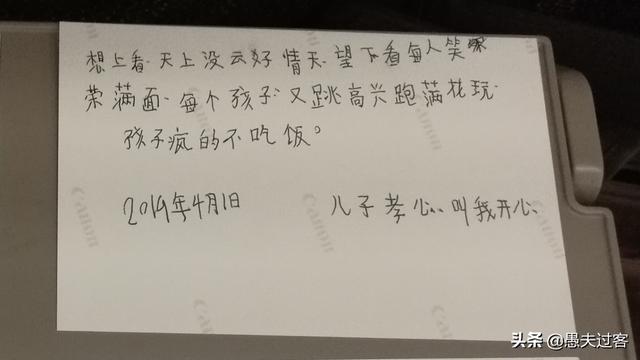 想上看.天上没云好情天.望下看每人笑
荣满面.每个孩子又跳高兴跑满花玩.
孩子疯的不吃饭。
2019年4月1日
儿子孝心..叫我开心.
Canon
Canon
Canon
Canon
Canon
Canon
头条 @愚夫过客